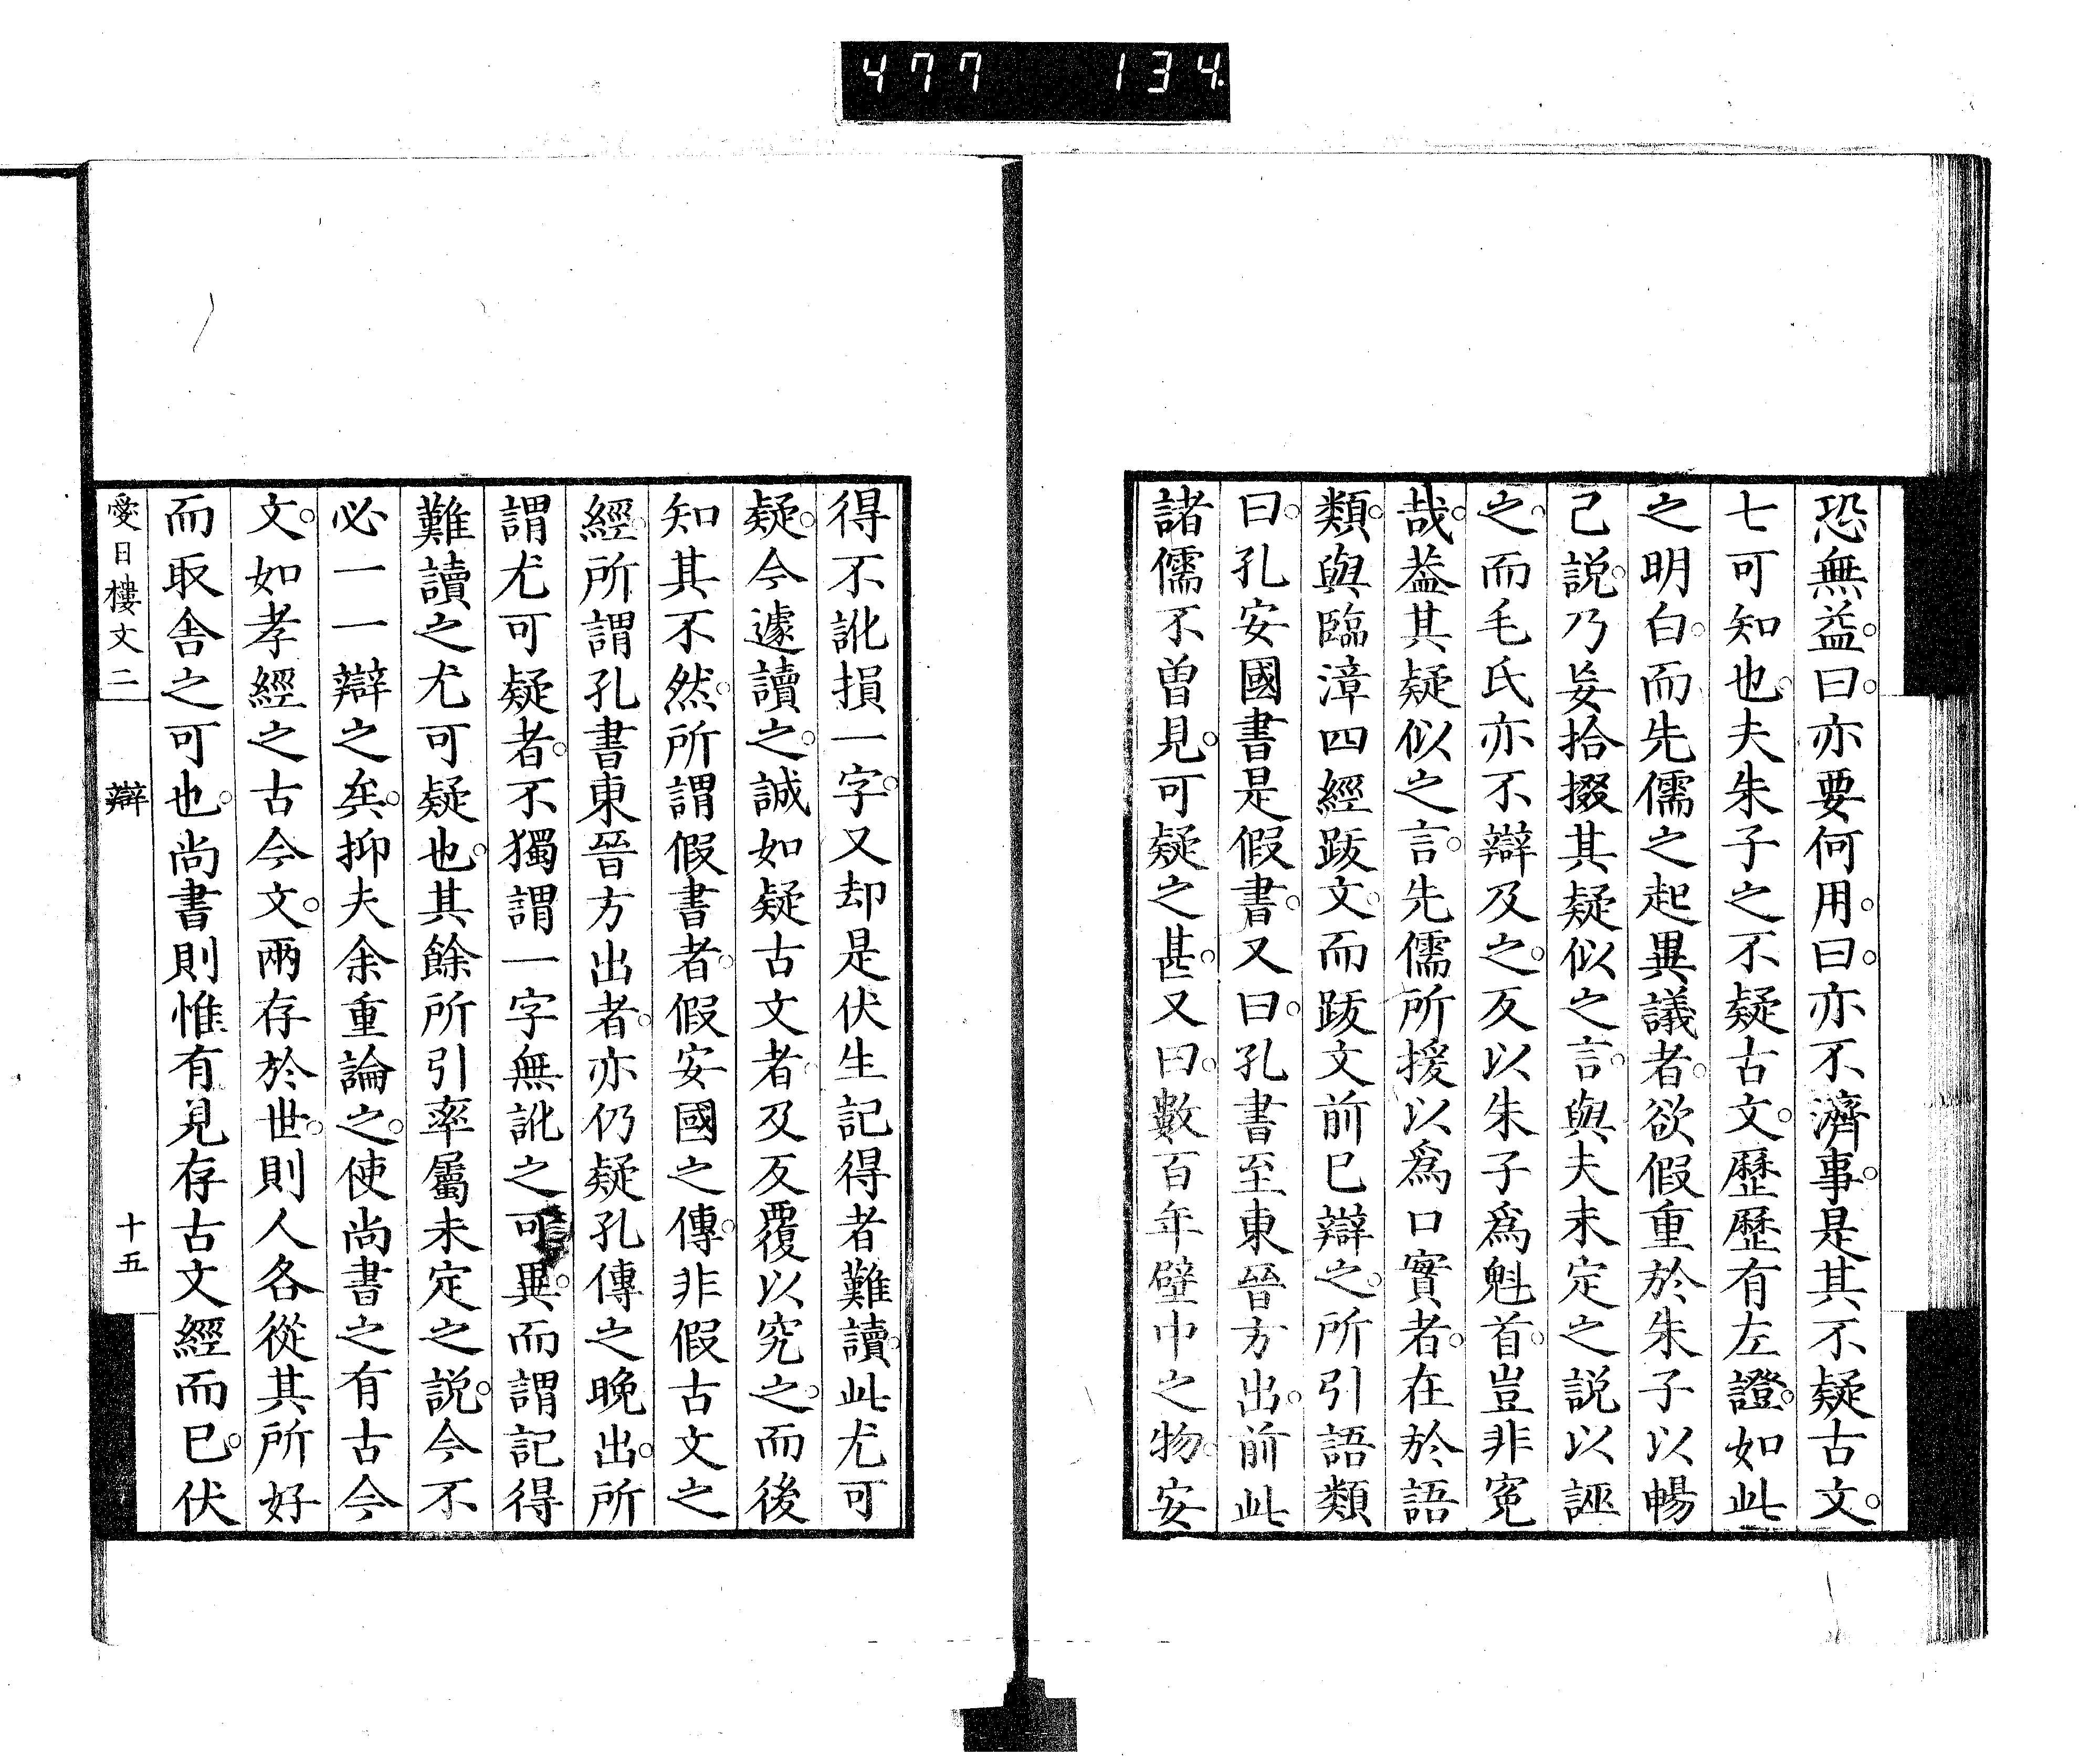 477 134
恐無益。曰。亦要何用。曰。亦不濟事。是其不疑古文。
七可知也。夫朱子之不疑古文。歷歷有左證。如此
之明白。而先儒之起異議者。欲假重於朱子以暢
己説。乃妄拾掇其疑似之言。與夫未定之説以誣
之。而毛氏亦不辯及之。反以朱子爲魁首。豈非冤
哉。葢其疑似之言。先儒所援以爲口實者。在於語
類。與臨漳四經跋文。而跋文前已辯之。所引語類
曰。孔安國書是假書。又曰。孔書至東晉方出。前此
諸儒不曽見。可疑之甚。又曰。數百年壁中之物。安
得不訛損一字。又却是伏生記得者難讀。此尤可
疑。今遽讀之。誠如疑古文者。及反覆以究之。而後
知其不然。所謂假書者。假安國之傳。非假古文之
經。所謂孔書東晉方出者。亦仍疑孔傳之晚出。所
謂尤可疑者。不獨謂一字無訛之可異。而謂記得
難讀之尤可疑也。其餘所引率屬未定之説。今不
必一一辯之矣。抑夫余重論之。使尚書之有古今
文。如孝經之古今文。兩存於世。則人各從其所好
而取舍之可也。尚書則惟有見存古文經而已。伏
愛日樓文二 辯 十五